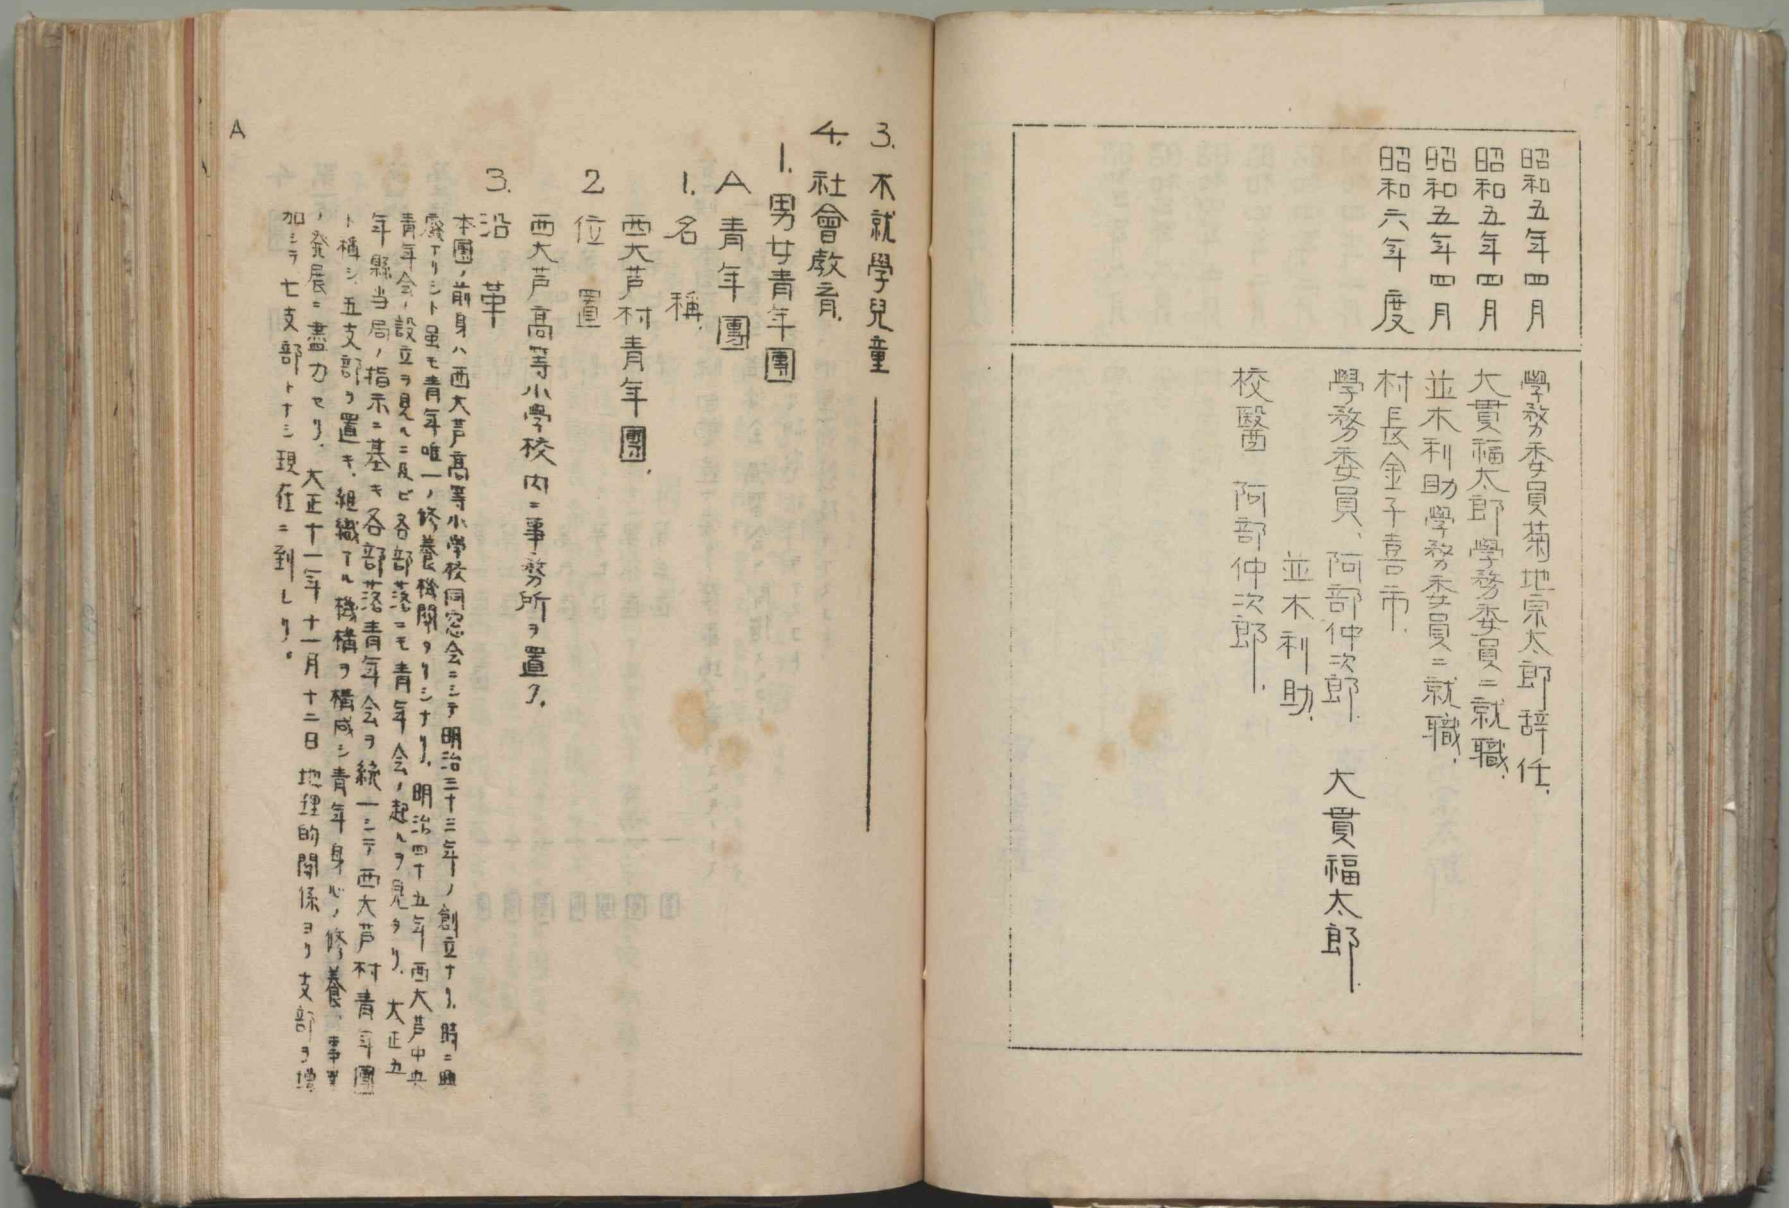 昭和五年四月 學務委員菊地宗太郎辞任、
昭和五年四月 大貫福太郎學務委員ニ就職、
昭和五年四月 並木利助学務委員ニ就職、
昭和六年度 村長金子喜市、
學務委員、阿部仲次郎 大貫福太郎
並木利助、
校醫 阿部仲次郎、
3. 不就學兒童
4. 社會教育、
1. 男女青年團
A 青年團
1. 名稱、
西大芦村青年團、
2 位置
西大芦高等小學校内ニ事務所ヲ置ク、
3. 沿革
本團ノ前身ハ西大芦高等小学校同窓会ニシテ明治三十三年ノ創立ナリ、時ニ興
廢アリシト虽モ青年唯一ノ修養機関タリシナリ、明治四十五年西大芦中央
青年会ノ設立ヲ見ルニ及ビ各部落ニモ青年会ノ起ルヲ見タリ、大正五
年縣当局ノ指示ニ基キ各部落青年会ヲ統一シテ西大芦村青年團
ト稱シ、五支部ヲ置キ、組織アル機構ヲ構成シ青年身心ノ修養、事業
ノ発展ニ盡力セリ、大正十一年十一月十二日地理的関係ヨリ支部ヲ増
加シテ七支部トナシ現在ニ到レリ。
A